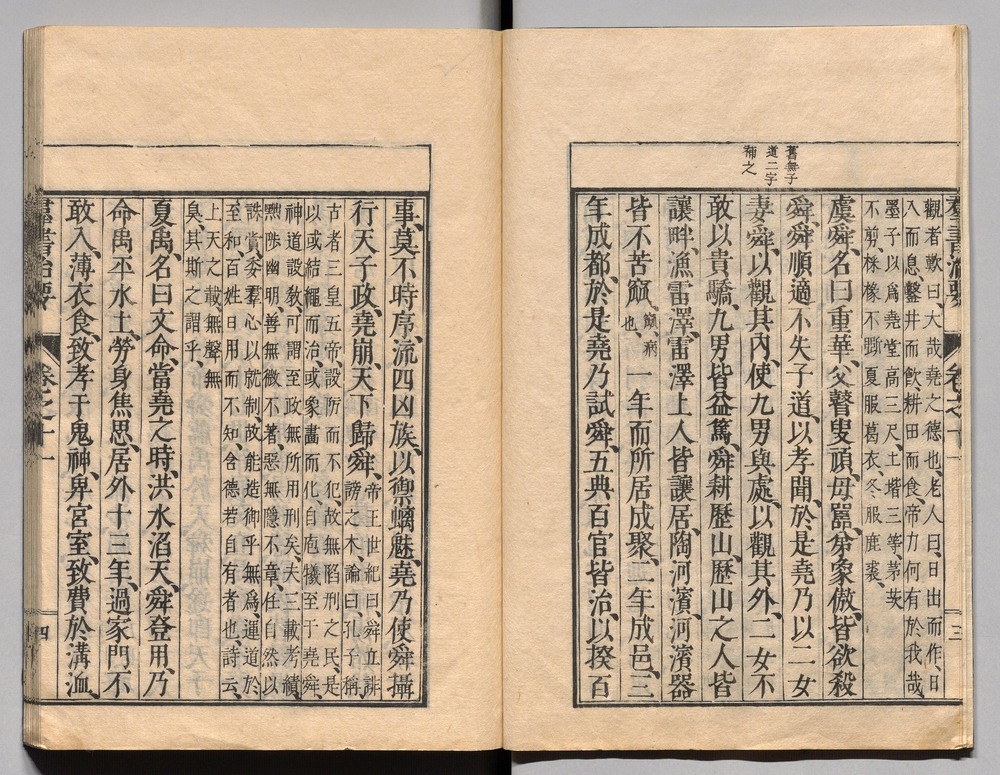 羣書治要 卷之十一 三
觀者歎曰、大哉堯之德也、老人曰、日出而作、日
入而息、鑿井而飲、耕田而食、帝力何有於我哉
墨子以爲堯堂高三尺、土堦三等、茅茨
不剪、株椽不斲、夏服葛衣、冬服鹿裘、
虞舜、名曰重華、父瞽叟頑、母嚚、弟象傲、皆欲殺
舜、舜順適不失子道、以孝聞、於是堯乃以二女
舊無子
道二字
補之
妻舜、以觀其内、使九男與處、以觀其外、二女不
敢以貴驕、九男皆益篤、舜耕歷山、歷山之人皆
讓畔、漁雷澤、雷澤上人皆讓居、陶河濱、河濱器
皆不苦窳、窳、病也、一年而所居成聚、二年成邑、三
年成都、於是堯乃試舜、五典百官皆治、以揆百
事、莫不時序、流四凶族、以禦螭魅、堯乃使舜攝
行天子政、堯崩、天下歸舜、帝王世紀曰、舜立誹
謗之木、論曰、孔子稱、
古者三皇五帝、設防而不犯、故無陷刑之民、是
以或結繩而治、或象畫而化、自庖犧至于堯舜、
神道設敎、可謂至政無所用刑矣、夫三載考績
黜陟幽明、善無微不著、惡無隱不章、任自然以
誅賞、委羣心以就制、故能造御乎無爲、運道於
至和、百姓日用而不知、含德若自有者也、詩云、
上天之載、無聲無
臭、其斯之謂乎、
夏禹、名曰文命、當堯之時、洪水滔天、舜登用、乃
命禹平水土、勞身焦思、居外十三年、過家門不
敢入、薄衣食、致孝于鬼神、卑宮室、致費於溝洫、
羣書治要 卷之十一 四